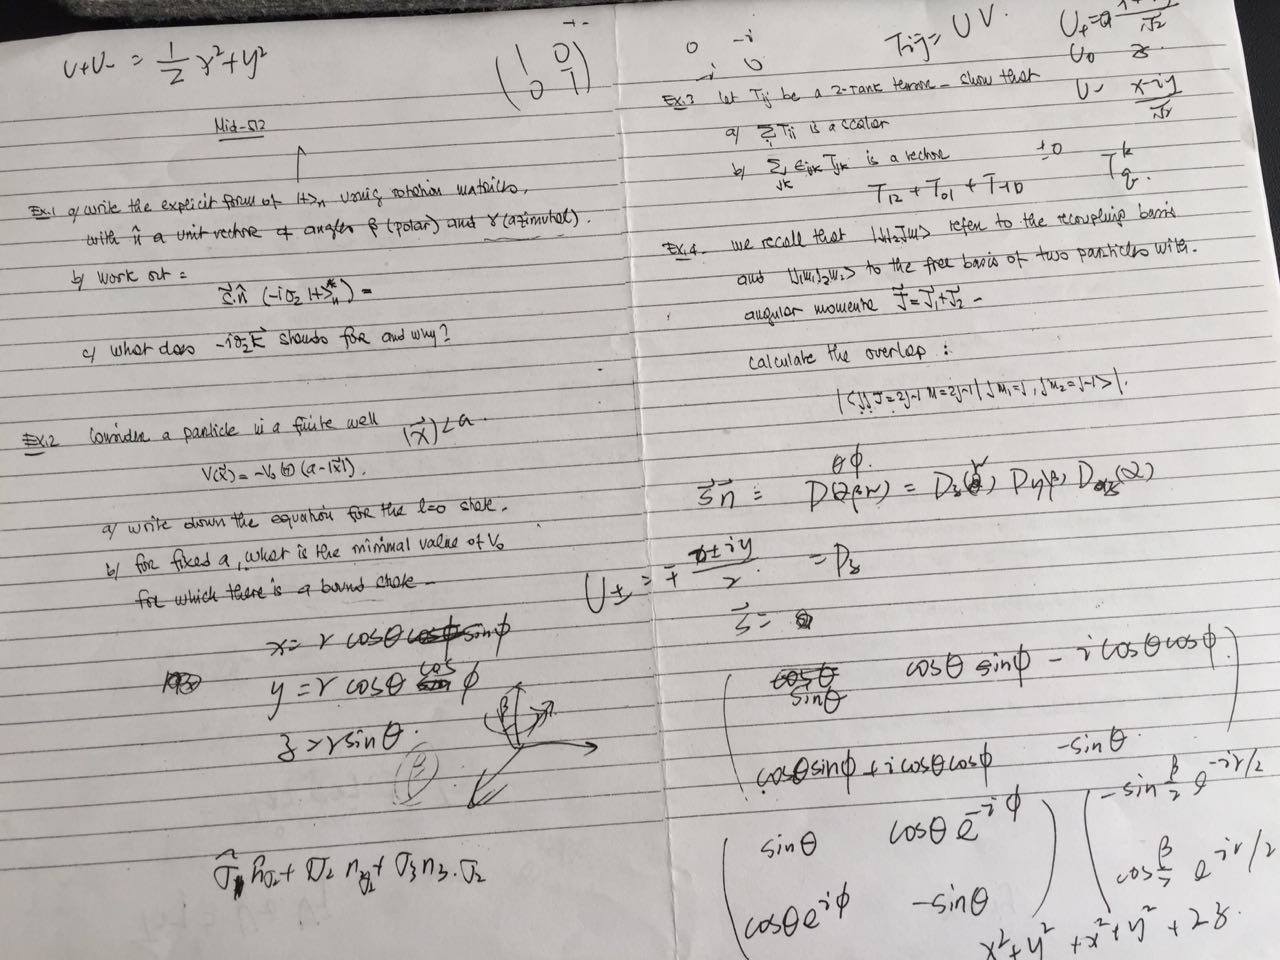 U+U- = 1/2 x²+y²
+ -
( 1 0
0 -1 )
Mid-512
Ex.1 a/ write the explicit form of |+>n using rotation matrices,
with n̂ a unit vector of angles β (polar) and γ (azimutal).
b/ work out =
S⃗.n̂ (-iσ2 |+>n*) =
c/ what does -iσ2K stands for and why?
Ex.2 Consider a particle in a finite well |x⃗|<a.
V(x⃗) = -V0 Θ (a-|x⃗|).
a/ write down the equation for the l=0 state.
b/ for fixed a, what is the minimal value of V0
for which there is a bound state -
x = r cosθ sinφ
y = r cosθ cos φ
z > r sinθ.
β
(β)
n + σ2 n + σ3 n3 . σ2
0 -i
-i 0
Tij = U V.
U+ = x+iy/√2
U0 z
U- x-iy/√2
Ex.3 let Tij be a 2-rank tensor - show that
a/ Σi Tii is a scalar
b/ Σjk εijk Tjk is a vector
±0
T12 + T01 + T-10
T^k_q.
Ex.4. we recall that |j1j2JM> refer to the recoupling basis
and |j1m1j2m2> to the free basis of two particles with
angular momenta J⃗=J⃗1+J⃗2 -
Calculate the overlap :
|<jj J=2j-1 M=2j-1| j m1=j, j m2=j-1>|.
θφ.
S⃗n⃗ = D(αβγ) = Dz(γ) Dy(β) Dz(α)
U± = ∓ x±iy/2 = Dz
S⃗ =
sinθ cosθ sinφ - i cosθcosφ
cosθsinφ + i cosθcosφ -sinθ
sinθ cosθ e^-iφ
cosθe^iφ -sinθ
-sin β/2 e^-iγ/2
cos β/2 e^-iγ/2
x²+y² + x²+y² + 2z.